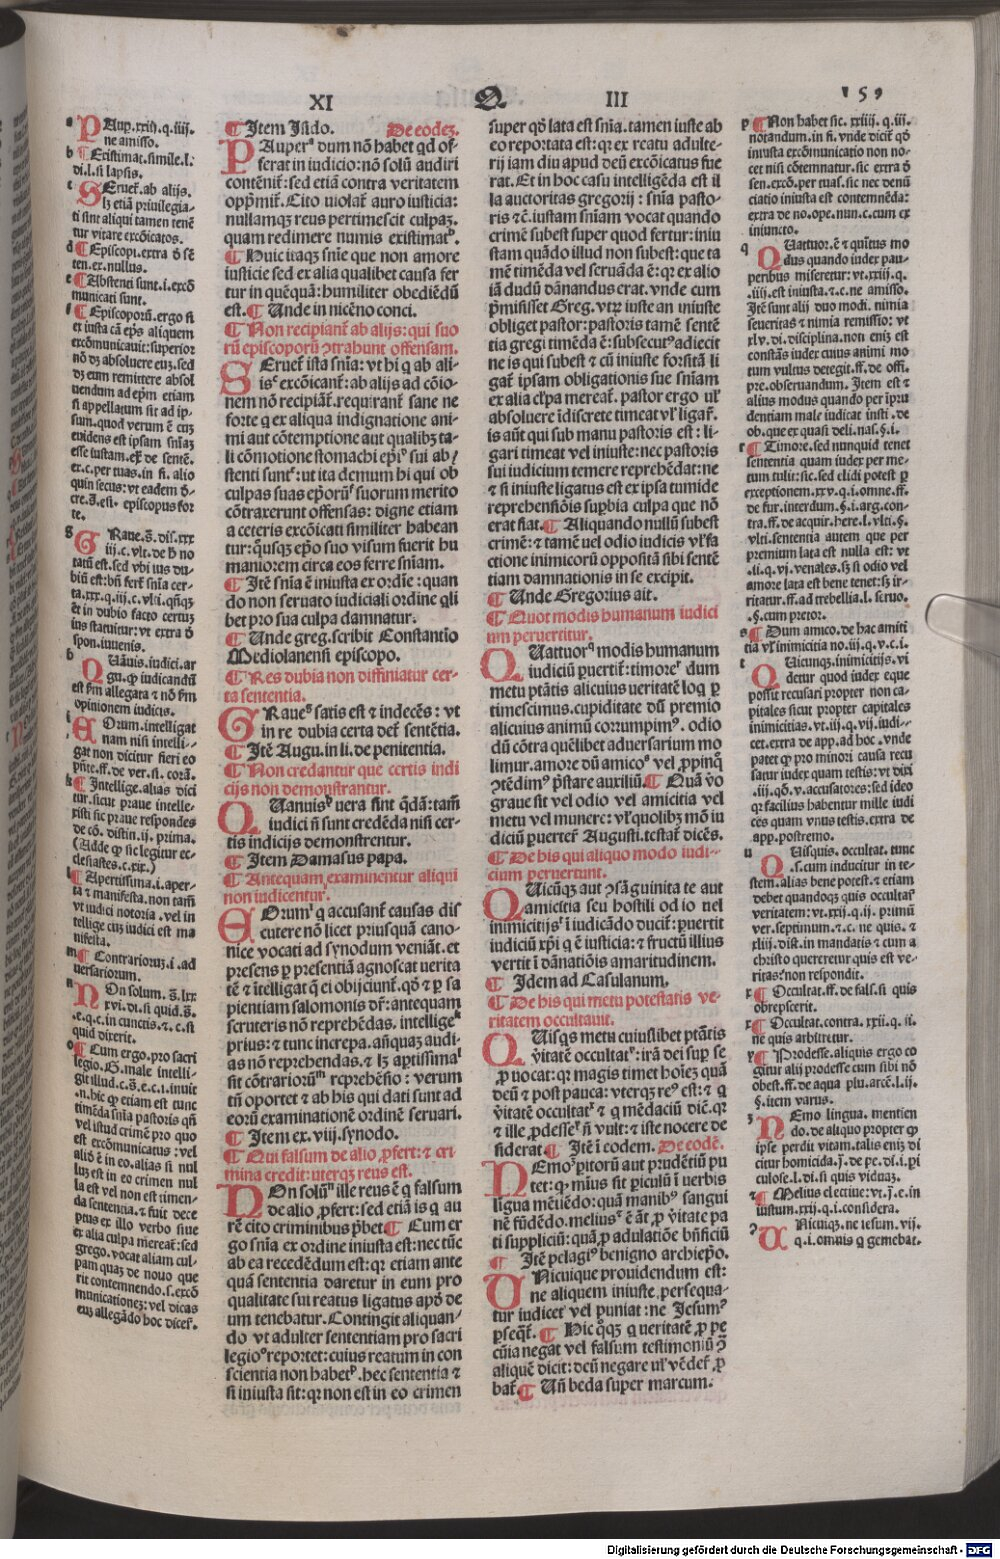 XI Q III 159
a PAup. xxiii. q. iiii.
ne amisso.
b ¶ Existimat. simile. l:
di. l. si lapsis.
c SEruet̄. ab alijs.
lꝫ etiā priuilegia-
ti sint aliqui tamen tenē
tur vitare excōicatos.
d ¶ Episcopi. extra ð sē
ten. ex. nullus.
e ¶ Abstenti sunt. i. excō
municati sunt.
f ¶ Episcoporū. ergo si
ex iusta cā ep̄s aliquem
excōmunicauit: superior
nō dꝫ absoluere euꝫ. sed
dꝫ eum remittere absol
uendum ad ep̄m etiam
si appellatum sit ad ip-
sum. quod verum ē cuꝫ
euidens est ipsam sn̄iaꝫ
esse iustam.
ex. c. per tuas. in fi. alio
quin secus: vt eadem ð-
episcopus for
te.
g GRaue. s̄. dis. xxx
iij. c. vlt. de h̄ no
tatū est. sed vbi ius du-
biū est: bn̄ fert̄ sn̄ia cer-
ēt in dubio facto certuꝫ
ius statuitur: vt extra ð
spon. iuuenis.
h QUāuis. iudici. ar
gē. ꝙ iudicandū
est ẜm allegata ⁊ nō ẜm
opinionem iudicis.
i EOrum. intelligat
nam nisi intelli-
gat non dicitur fieri eo
pn̄te. ff. de ver. si. corā.
k ¶ Intellige. alias dici
tur. sicut praue intelle-
xisti sic praue respondes
de cō. distin. ij. prima.
(Adde ꝙ sic legitur ec-
clesiastes. c. xix.)
l ¶ Apertissima. i. aper-
ta ⁊ manifesta. non tam̄
vt iudici notoria. vel in
tellige cuꝫ iudici est ma
nifesta.
m ¶ Contrariorum. i. ad
uersariorum.
n NOn solum. s̄. lxx
xvi. di. si quid. s̄.
e. q. c. in cunctis. ⁊. c. si
quid dixerit.
o ¶ Cum ergo. pro sacri
legio. G. male intelli-
git illud. c. s̄. e. c. i. innuit
n. hic ꝙ etiam est tunc
timēda sn̄ia pastoris qn̄
vel istud crimē pro quo
est excōmunicatus: vel
aliō ē in eo. alias si nul
luꝫ est in eo crimen nul
la est vel non est timen-
da sententia. ⁊ fuit dece
ptus ex illo verbo siue
ex alia culpa mereat̄: sed
grego. vocat aliam cul-
pam quaꝫ de nouo que
rit contemnendo. s. excō
municationeꝫ: vel dicas
euꝫ allegādo hoc dicer̄.
¶ Item Isido. De eodeꝫ.
PAuper dum nō habet qd of-
ferat in iudicio: nō solū audiri
contēnit̄: sed etiā contra veritatem
opp̄mit̄. Cito violat̄ auro iusticia:
nullamqꝫ reus pertimescit culpaꝫ.
quam redimere numis existimat̄.
¶ Huic itaqꝫ sn̄ie que non amore
iusticie sed ex alia qualibet causa fer
tur in quēquā: humiliter obediēdū
est. ¶ Unde in nicēno conci.
¶ Non recipiant̄ ab alijs: qui suo
rū episcoporū ↄtrahunt offensam.
SEruet̄ ista sn̄ia: vt hi q ab ali-
is excōicant̄: ab alijs ad cōio-
nem nō recipiāt̄. requirant̄ sane ne
forte q ex aliqua indignatione ani-
mi aut cōtemptione aut qualibꝫ ta-
li cōmotione stomachi ep̄i sui ab
stenti sunt: vt ita demum hi qui ob
culpas suas ep̄orū suorum merito
cōtraxerunt offensas: digne etiam
a ceteris excōicati similiter habean
tur: qusqꝫ ep̄o suo visum fuerit hu
maniorem circa eos ferre sn̄iam.
¶ Itē sn̄ia ē iniusta ex ordīe: quan
do non seruato iudiciali ordine qli
bet pro sua culpa damnatur.
¶ Unde greg. scribit Constantio
Mediolanensi episcopo.
¶ Res dubia non diffiniatur cer-
ta sententia.
GRaue satis est ⁊ indecēs: vt
in re dubia certa det̄ sentētia.
¶ Itē Augu. in li. de penitentia.
¶ Non credantur que certis indi
cijs non demonstrantur.
QUanuis vera sint qdā: tam̄
iudici n̄ sunt credēda nisi cer-
tis indicijs demonstrentur.
¶ Item Damasus papa.
¶ Antequam examinentur aliqui
non iudicentur.
EOrum q accusant̄ causas dis
cutere nō licet priusquā cano-
nice vocati ad synodum veniāt. et
presens p presentiā agnoscat verita
tē ⁊ itelligat q ei obijciunt̄. qō ⁊ p sa
pientiam salomonis dr̄: antequam
scruteris nō reprehēdas. intellige
prius: ⁊ tunc increpa. anquaꝫ audi-
as nō reprehendas. ⁊ lꝫ aptissima
sit cōtrariorū reprehēsio: verum
tn̄ oportet ⁊ ab his qui dati sunt ad
eorū examinationē ordinē seruari.
¶ Item ex. viij. synodo.
¶ Qui falsum de alio ꝓfert: ⁊ cri
mina credit: uterqꝫ reus est.
NOn solū ille reus ē q falsum
de alio ꝓfert: sed etiā is q au
rē cito criminibus p̄bet. ¶ Cum er
go sn̄ia ex ordine iniusta est: nec tūc
ab ea recedēdum est: qꝛ etiam ante
quā sententia daretur in eum pro
qualitate sui reatus ligatus apō de
um tenebatur. Contingit aliquan-
do vt adulter sententiam pro sacri
legio reportet: cuius reatum in con
scientia non habet. hec sententia ⁊
si iniusta sit: qꝛ non est in eo crimen
super qō lata est sn̄ia. tamen iuste ab
eo reportata est: qꝛ ex reatu adulte-
rij iam diu apud deū excōicatus fue
rat. Et in hoc casu intelligēda est il
la auctoritas gregorij: sn̄ia pasto-
ris ⁊ē. iustam sn̄iam vocat quando
crimē subest super quod fertur: iniu
stam quādo illud non subest: que ta
mē timēda vel seruāda ē: qꝛ ex alio
iā dudū dānandus erat. vnde cum
p̄misisset Greg. vtꝝ iuste an iniuste
obliget pastor: pastoris tamē sentē
tia gregi timēda ē: subsecutꝰ adiecit
ne is qui subest ⁊ cū iniuste forsitā li
gat̄ ipsam obligationis sue sn̄iam
ex alia cl̄pa mereat̄. pastor ergo vl̄
absoluere īdiscrete timeat vl̄ ligar̄.
is aūt qui sub manu pastoris est: li-
gari timeat vel iniuste: nec pastoris
sui iudicium temere reprehēdat: ne
⁊ si iniuste ligatus est ex ipsa tumide
reprehensiōis suꝑbia culpa que nō
erat fiat. ¶ Aliquando nullū subest
crimē: ⁊ tamē vel odio iudicis vl̄ fa
ctione inimicorū oppositā sibi sentē
tiam damnationis in se excipit.
¶ Unde Gregorius ait.
¶ Quot modis humanum iudici
um peruertitur.
QUattuor modis humanum
iudiciū puertit̄: timore dum
metu ptātis alicuius veritatē loq p
timescimus. cupiditate dū premio
alicuius animū corrumpimꝰ. odio
dū cōtra quēlibet aduersarium mo
limur. amore dū amico vel ꝓpinq
ↄtēdimꝰ p̄stare auxiliū. ¶ Quā v̊o
graue sit vel odio vel amicitia vel
metu vel munere: vl̄ quolibꝫ mō iu
diciū puerter̄ Augusti. testat̄ dicēs.
¶ De his qui aliquo modo iudi-
cium peruertunt.
QUicūqꝫ aut ↄsāguinitate aut
amicitia seu hostili odio uel
inimicitijs ī iudicādo ducit̄: puertit
iudiciū xp̄i q ē iusticia: ⁊ fructū illius
vertit ī dānatiōis amaritudinem.
¶ Idem ad Casulanum.
¶ De his qui metu potestatis ve-
ritatem occultant.
QUisqs metu cuiuslibet ptātis
v̄itatē occultat: irā dei suꝑ se
ꝓuocat: qꝛ magis timet hoīeꝫ quā
deū ⁊ post pauca: vterqꝫ reꝰ est: ⁊ q
v̄itatē occultat ⁊ q mēdaciū dic̄. qꝛ
⁊ ille ꝓdesse n̄ vult: ⁊ iste nocere de
siderat. ¶ Itē ī eodem. De eodē.
NEmo pitorū aut prudētiū pu
tet: qꝫ minꝰ sit piculū ī verbis
ligua mētiēdo: quā manibꝰ sangui
nē fūdēdo. meliusꝗ ē āt ꝓ v̄itate pa
ti suppliciū: quā ꝓ adulatiōe bn̄ficiū
¶ Itē pelagiꝰ benigno archiep̄o.
UNicuique prouidendum est:
ne aliquem iniuste. persequa-
tur iudicet vel puniat: ne Jesum
pseqt̄. ¶ Hic q̄qꝫ q ueritatē ꝓ pe
cūia negat vel falsum testimoniū ↄ̄
aliquē dicit: deū negare ul̄ vēder̄ ꝓ
bat̄. ¶ Un̄ beda super marcum.
p ¶ Non habet sic. xxiiii. q. iii.
notandum. in fi. vnde dicit̄ qō
iniusta excōmunicatio non no-
cet nisi cōtemnatur. sic extra ð
sen. excō. per tuas. sic nec denū
ciatio iniusta est contemnēda:
extra de no. ope. nun. c. cum ex
iniuncto.
q QUattuor. ē ⁊ quītus mo
dus quando iudex pau-
peribus miseretur: vt. xxii. q.
iiii. est iniusta. ⁊. c. ne amisso.
Itē sunt alij duo modi. nimia
seueritas ⁊ nimia remissio: vt
xlv. di. disciplina. non enīꝫ est
constās iudex cuius animi mo
tum vultus detegit. ff. de offi.
pre. obseruandum. Item est ⁊
alius modus quando per īpru
dentiam male iudicat insti. de
ob. que ex quasi deli. nas. §. i.
r ¶ Timore. sed nunquid tenet
sententia quam iudex per me-
tum tulit: sic. sed elidi potest p
exceptionem. xxv. q. i. omne. ff.
de fur. interdum. §. i. arg. con-
tra. ff. de acquir. here. l. vlti. §.
vlti. sententia autem que per
premium lata est nulla est: vt
.ii. q. vj. venales. sꝫ si odio vel
amore lata est bene tenet: sꝫ ir-
ritatur. ff. ad trebellia. l. seruo.
§. cum pretor.
s ¶ Dum amico. de hac amiti
tia vl̄ inimicitia no. iij. q. v. c. i.
t QUicunqꝫ. inimicitijs. vi
detur quod iudex eque
possit recusari propter non ca-
pitales sicut propter capitales
inimicitias. vt. iij. q. vij. iudi-
cet. extra de app. ad hoc. vnde
patet ꝙ pro minori causa recu
satur iudex quam testis: vt dixi
.iij. qō. v. accusatores: sed ideo
qꝛ facilius habentur mille iudi
ces quam vnus testis. extra de
app. postremo.
u QUisquis. occultat. tunc
s. cum inducitur in te-
stem. alias bene potest. ⁊ etiam
debet quandoqꝫ quis occultar̄
veritatem: vt. xxij. q. ij. primū
ver. septimum. ⁊. c. ne quis. ⁊
xliij. dist. in mandatis ⁊ cum a
christo quereretur quis est ve-
ritas: non respondit.
x ¶ Occultat. ff. de fals. si quis
obrepserit.
¶ Occultat. contra. xxii. q. ii.
ne quis arbitretur.
y ¶ Prodesse. aliquis ergo co
gitur alij prodesse cum sibi nō
obest. ff. de aqua plu. arcē. l. ij.
§. item varus.
z NEmo lingua. mentien
do. de aliquo propter ꝙ
ipse perdit vitam. talis enīꝫ di
citur homicida. j. de pe. di. i. pi
culose. l. di. si quis viduaꝫ.
⁊ ¶ Melius electiue: vt. j. e. in
iustum. xxij. q. i. considera.
UNicuiqꝫ. ne iesum. vij.
q. i. omnis q gemebat.
Digitalisierung gefördert durch die Deutsche Forschungsgemeinschaft - DFG